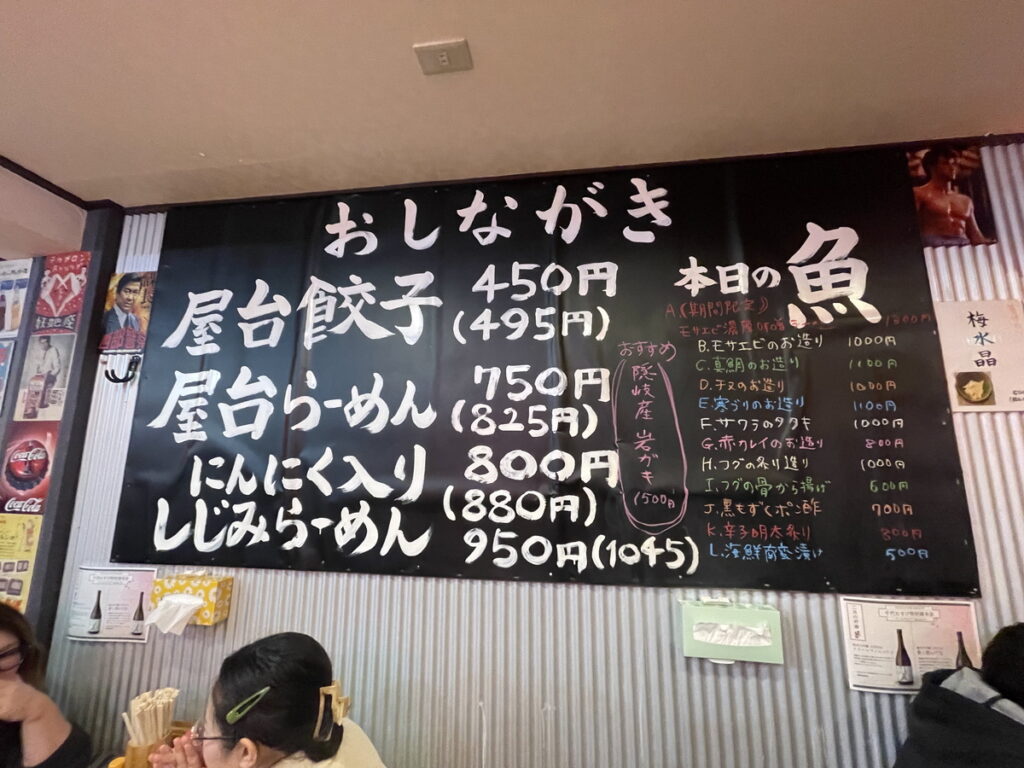 おしながき
屋台餃子 450円
(495円)
屋台らーめん 750円
(825円)
にんにく入り 800円
(880円)
しじみらーめん 950円(1045)
おすすめ
隠岐産岩ガキ
1500円
本日の魚
A.《期間限定》
モサエビ
B.モサエビのお造り 1000円
C.真鯛のお造り 1100円
D.チヌのお造り 1000円
E.寒ブリのお造り 1100円
F.サワラのタタキ 1000円
G.赤カレイのお造り 800円
H.フグの炙り造り 1000円
I.フグの骨から揚げ 600円
J.黒もずくポン酢 700円
K.辛子明太炙り 800円
L.海鮮 漬け 500円
梅水晶
Coca-Cola
Coca-Cola